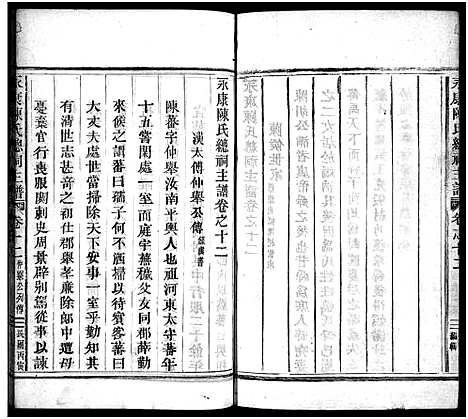 永康陳氏總祠主譜 卷之十二
永康陳氏總祠主譜卷之十二
漢太傅仲舉公傳 錄漢書
陳蕃字仲舉汝南平輿人也祖河東太守蕃年
十五嘗閑處一室而庭宇蕪穢父友同郡薛勤
來候之謂蕃曰孺子何不洒掃以待賓客蕃曰
大丈夫處世當掃除天下安事一室乎勤知其
有清世志甚奇之初仕郡舉孝廉除郎中遭母
憂棄官行喪服闋刺史周景辟別駕從事以諫
永康陳氏總祠主譜 卷十二 仲舉公列傳 一 民國丙寅